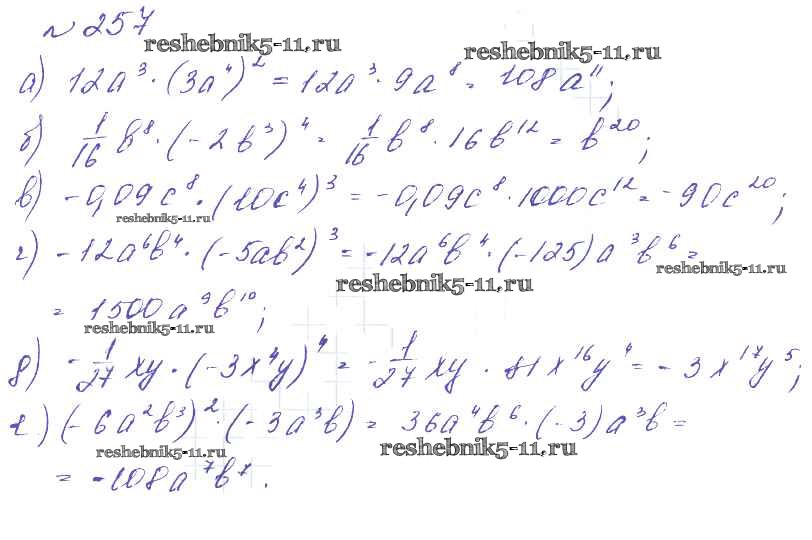 № 257
reshebnik5-11.ru
reshebnik5-11.ru
а) 12a³ · (3a⁴)² = 12a³ · 9a⁸ = 108a¹¹;
б) 1/16 b⁸ · (-2b³)⁴ = 1/16 b⁸ · 16b¹² = b²⁰;
в) -0,09c⁸ · (10c⁴)³ = -0,09c⁸ · 1000c¹² = -90c²⁰;
reshebnik5-11.ru
г) -12a⁶b⁴ · (-5ab²)³ = -12a⁶b⁴ · (-125)a³b⁶ =
reshebnik5-11.ru
reshebnik5-11.ru
= 1500a⁹b¹⁰;
reshebnik5-11.ru
д) -1/27 xy · (-3x⁴y)⁴ = -1/27 xy · 81x¹⁶y⁴ = -3x¹⁷y⁵;
е) (-6a²b³)² · (-3a³b) = 36a⁴b⁶ · (-3)a³b =
reshebnik5-11.ru
reshebnik5-11.ru
= -108a⁷b⁷.